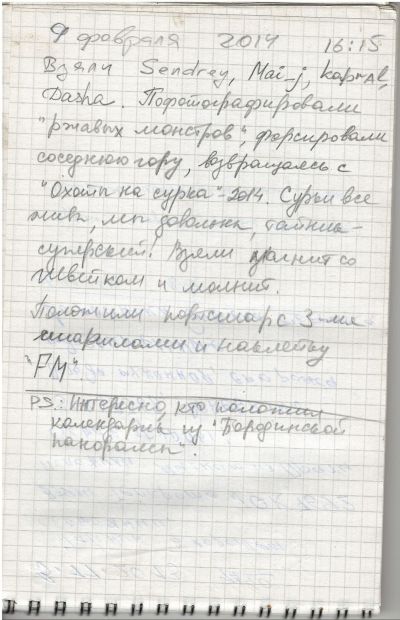 9 февраля 2014 16:15
Взяли Sendrey, Mai_j,
Dasha. Пофотографировали
"ржавых монстров", форсировали
соседнюю гору, возвращаясь с
"Охоты на сурка"-2014. Сурки все
живы, мы довольны, тайник -
суперский! Взяли магнит со
и магнит.
Положили портсигар с 3-мя
и наклейку
"FM".
PS.: Интересно, кто положил
календарик из "Бородинской
панорамы".